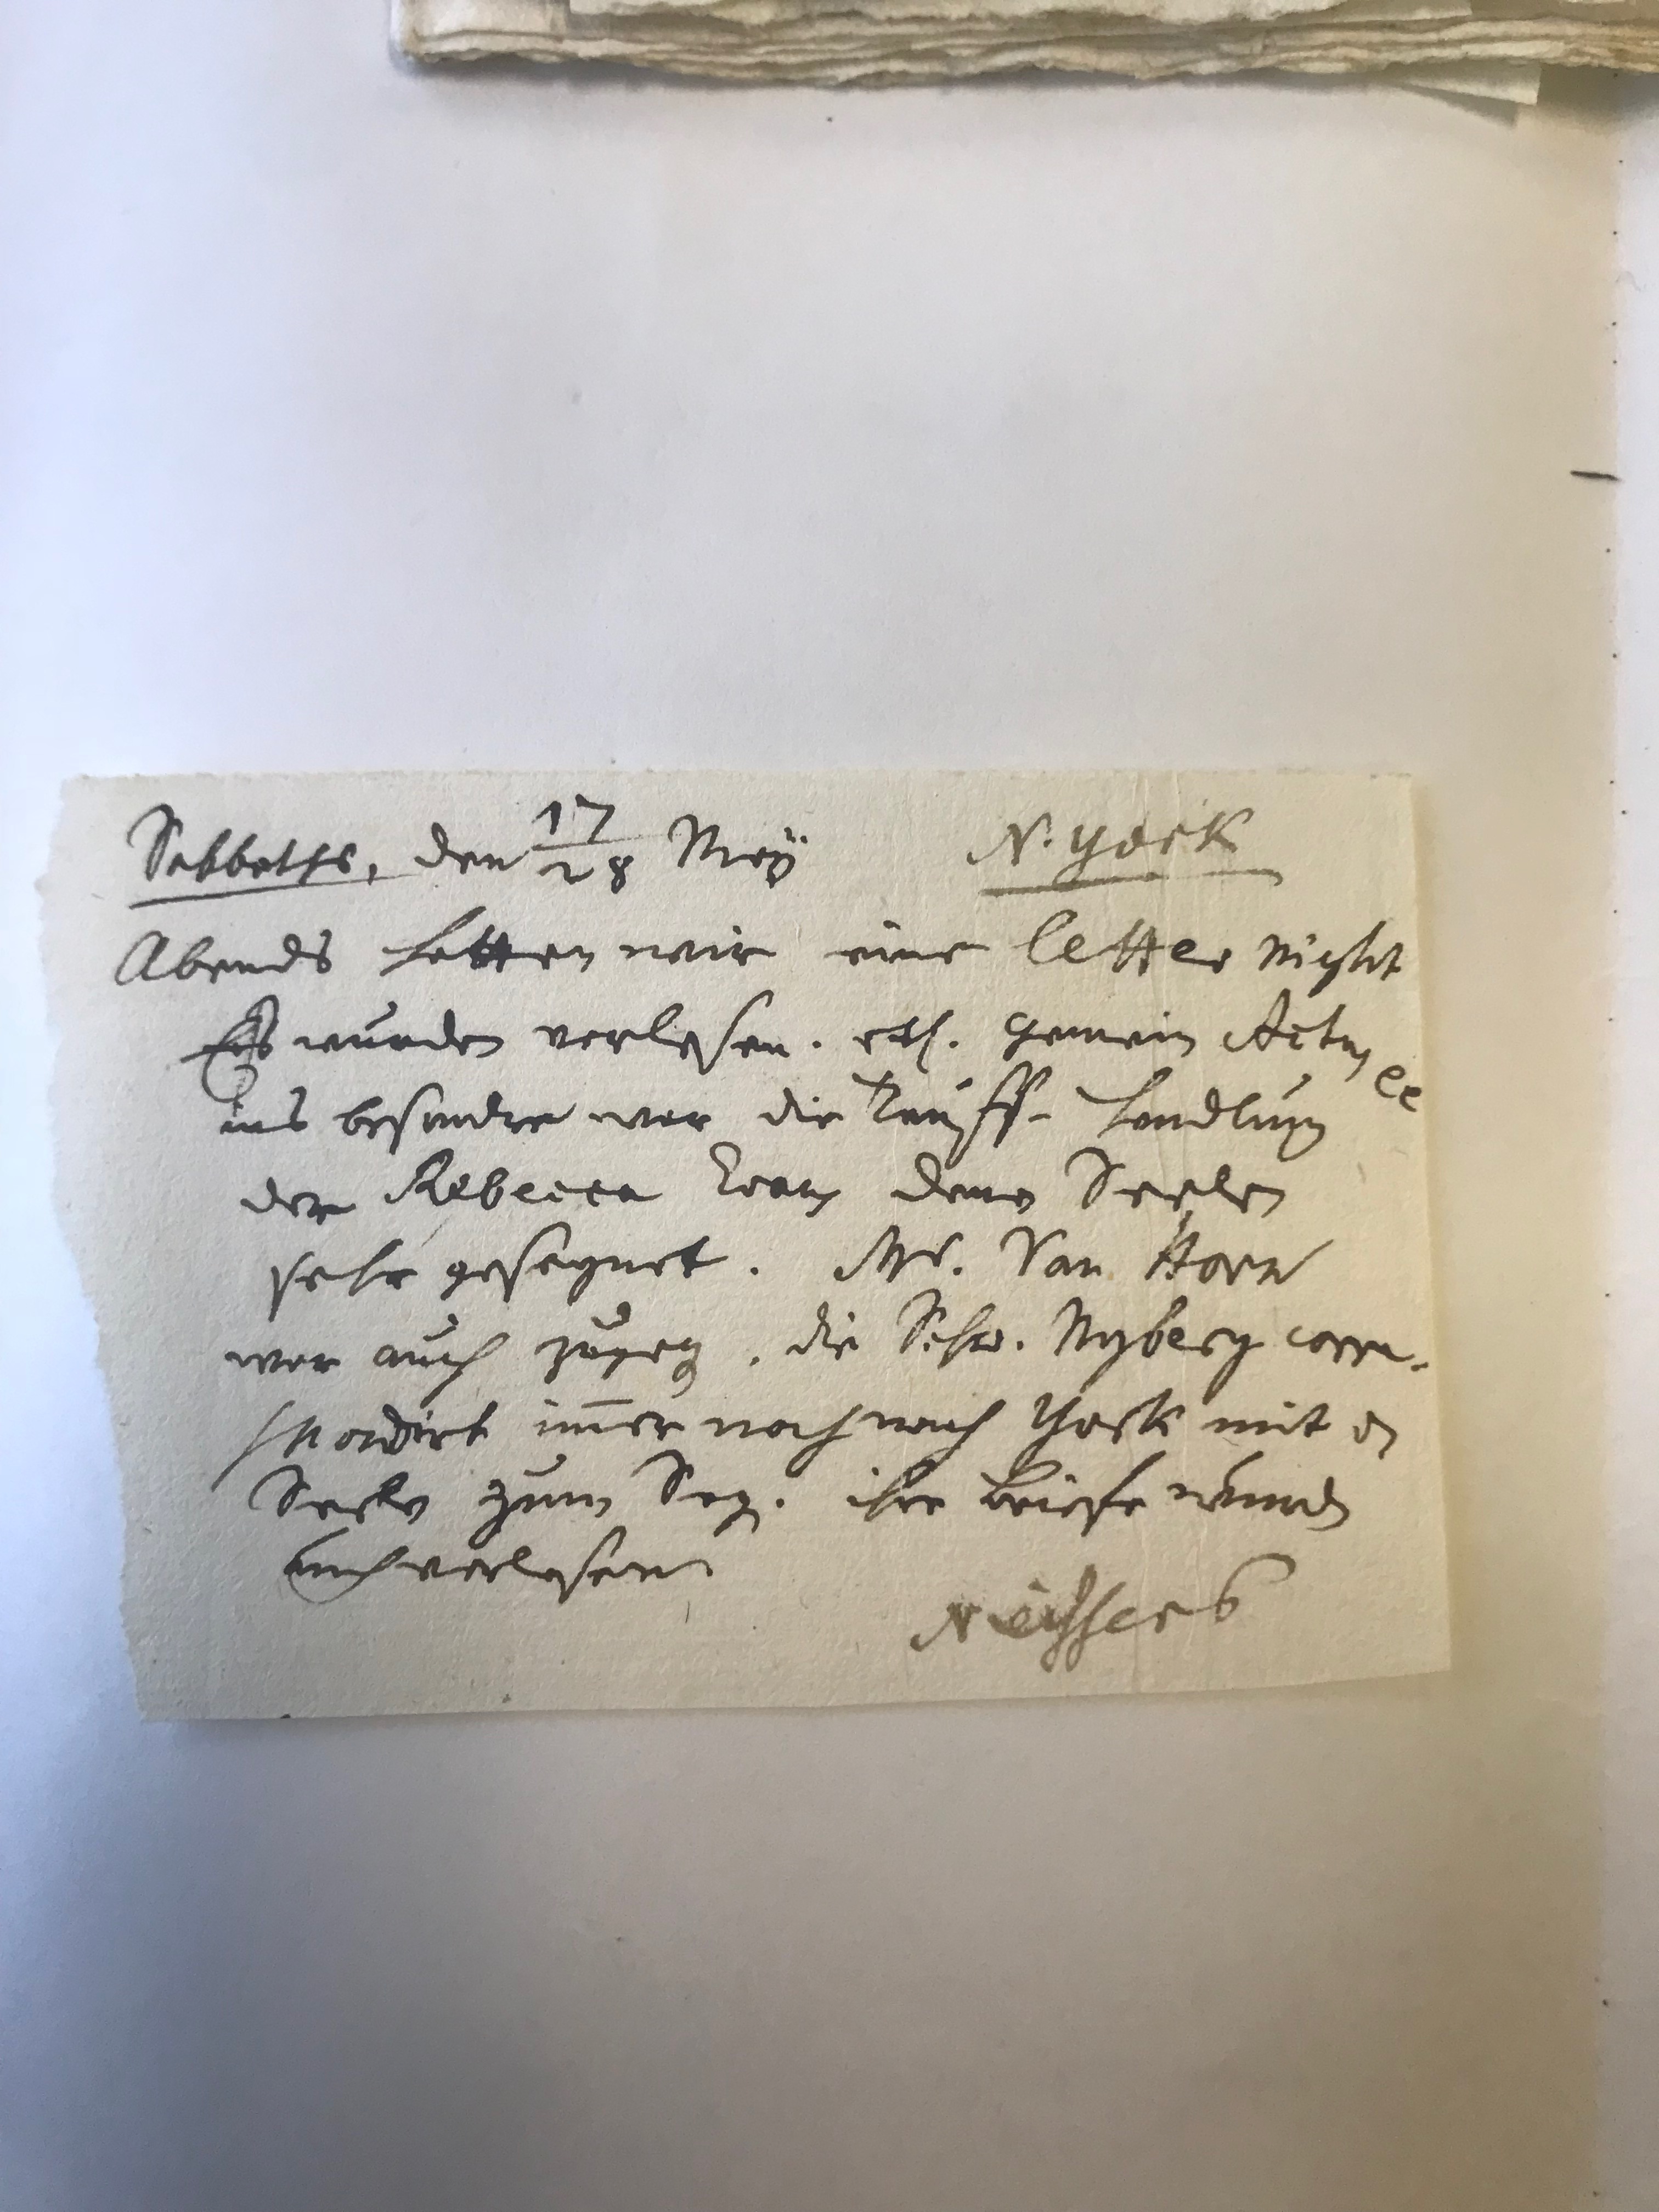 Sabbaths, den 17/28 Maÿ N. York
Abends hatten wir eine letter night
Es wurden verlesen. etl. gemein Acta
ins besondre war die Tauff-Handlung
der Rebecca denen Seelen
sehr gesegnet. Mr. Van Horn
war auch zugeg. die Schw. Nyberg corre-
spondirt im̅er noch nach York mit
Seeln zum Seg. ihre Briefe wurden
auch verlesen
Neissers